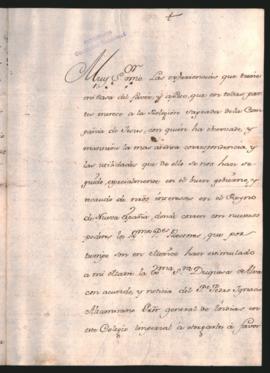 +
Muy S.or mio. Las experiencias que tiene
mi casa del favor, y afecto, que en todas par-
tes merece a la Religion sagrada de la Com-
pañia de Jesus, con quien ha observado, y
mantiene la mas atenta correspondencia, y
las utilidades que de ella se nos han se-
guido, especialmente en el buen gobierno, y
manejo de nros intereses en el Reyno
de Nueva España, donde corren con nuestros
poderes los Rmos PPes Rectores, que por
tiempo son en Mexico han estimulado
a mi esclare. la Exma Sra Duquesa de
con acuerdo, y noticia del Pe Pedro Ignacio
Altamirano Pror general de Yndias en
este Colegio Imperial a otorgarles a favor